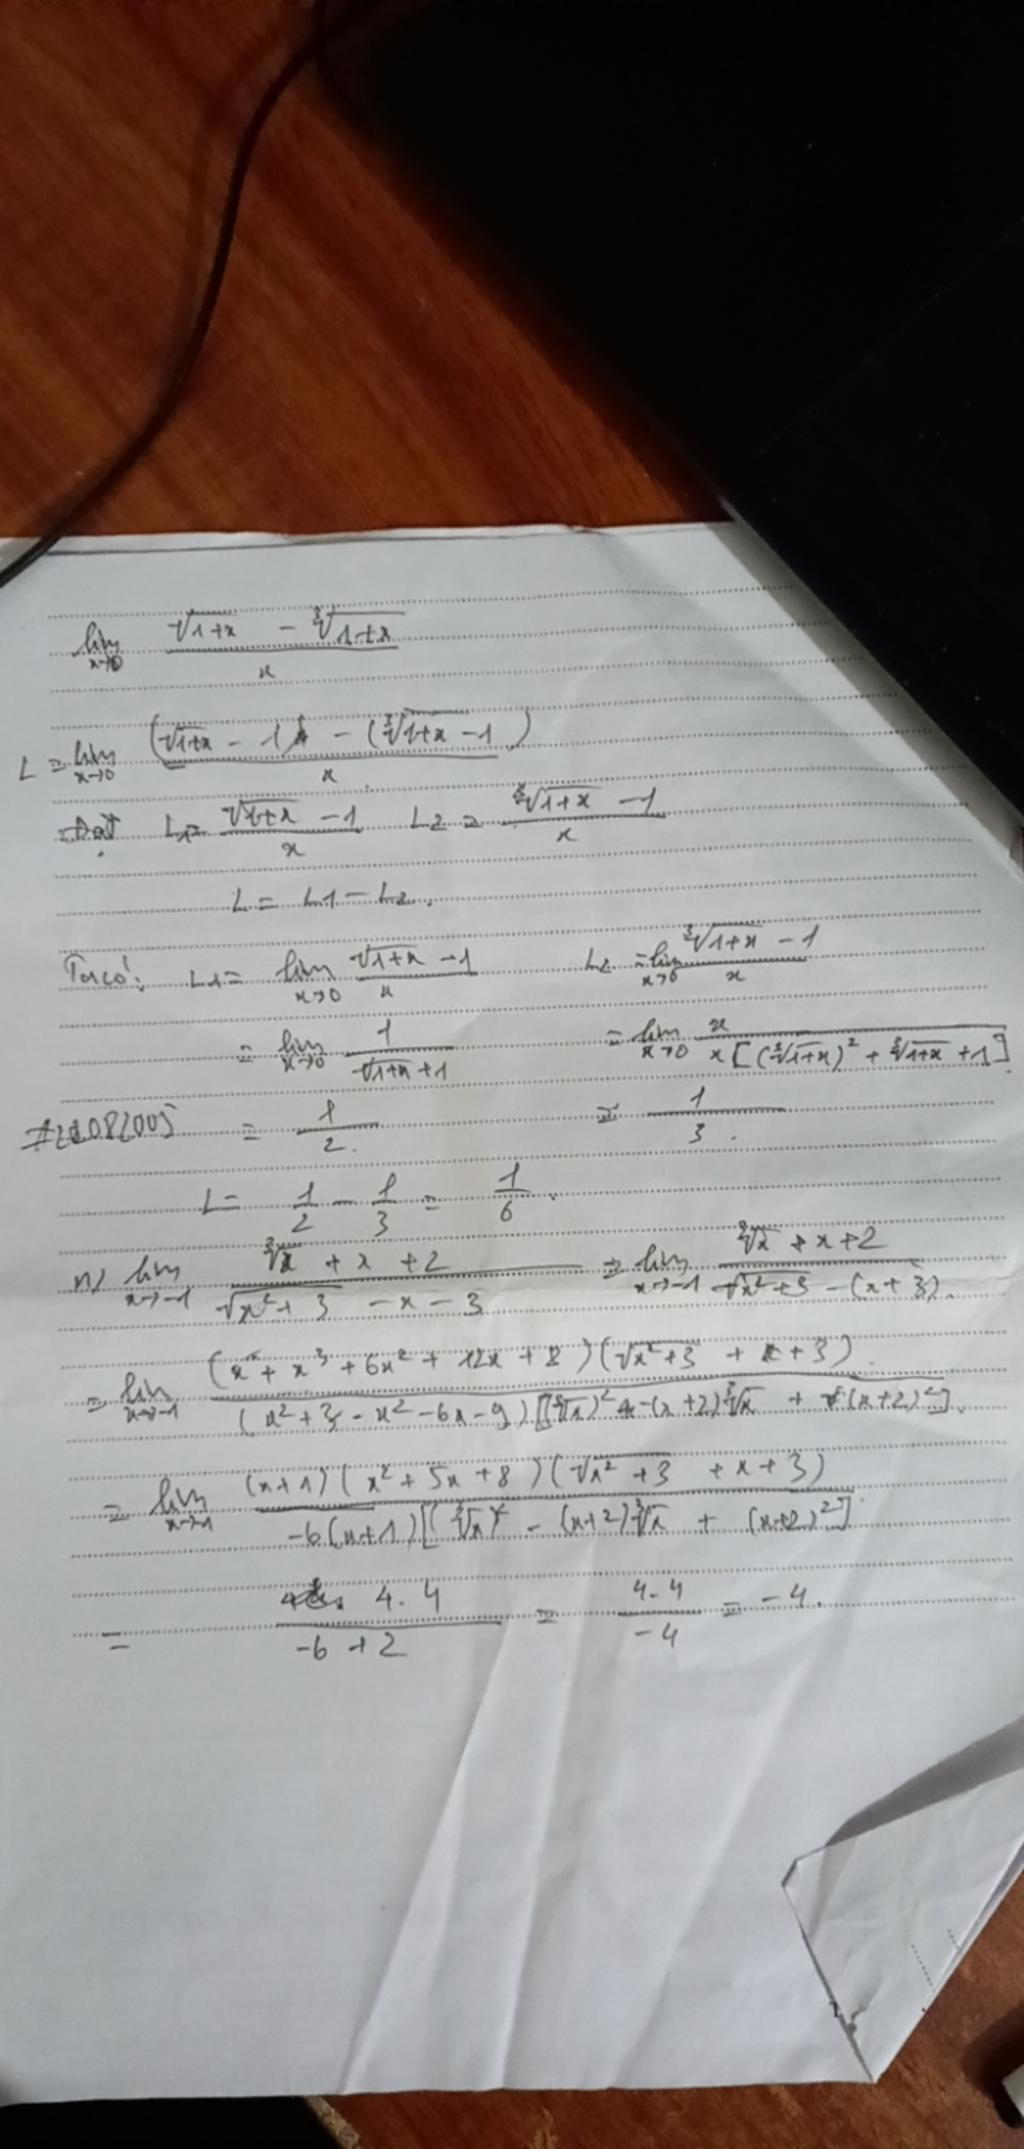 lim x→0 (√(1+x) − ∛(1+x)) / x
L = lim x→0 ((√(1+x) − 1) − (∛(1+x) − 1)) / x
Đặt L1 = (√(1+x) − 1) / x L2 = (∛(1+x) − 1) / x
L = L1 − L2.
Ta có: L1 = lim x→0 (√(1+x) − 1) / x L2 = lim x→0 (∛(1+x) − 1) / x
= lim x→0 1 / (√(1+x) + 1) = lim x→0 x / (x[(∛(1+x))² + ∛(1+x) + 1])
= 1/2. = 1/3.
L = 1/2 − 1/3 = 1/6.
n) lim x→−1 (∛x + x + 2) / (√(x²+3) − x − 3) = lim x→−1 (∛x + x + 2) / (√(x²+3) − (x+3)).
= lim x→−1 (x + x³ + 6x² + 12x + 8)(√(x²+3) + x + 3) / ((x² + 3 − x² − 6x − 9)[(∛x)² − (x+2)∛x + (x+2)²]).
= lim x→−1 (x+1)(x² + 5x + 8)(√(x²+3) + x + 3) / (−6(x+1)[(∛x)² − (x+2)∛x + (x+2)²])
= 4.4 / (−6 + 2) = 4.4 / −4 = −4.